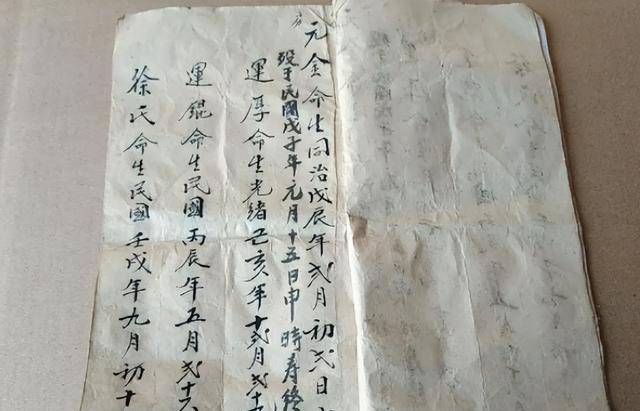 元金命生同治戊辰年弍月初弍日
殁于民國戊子年元月十五日申時寿终
運厚命生光緒己亥年十弍月弍十
運錕命生民國丙辰年五月弍十六
徐氏命生民國壬戌年九月初十